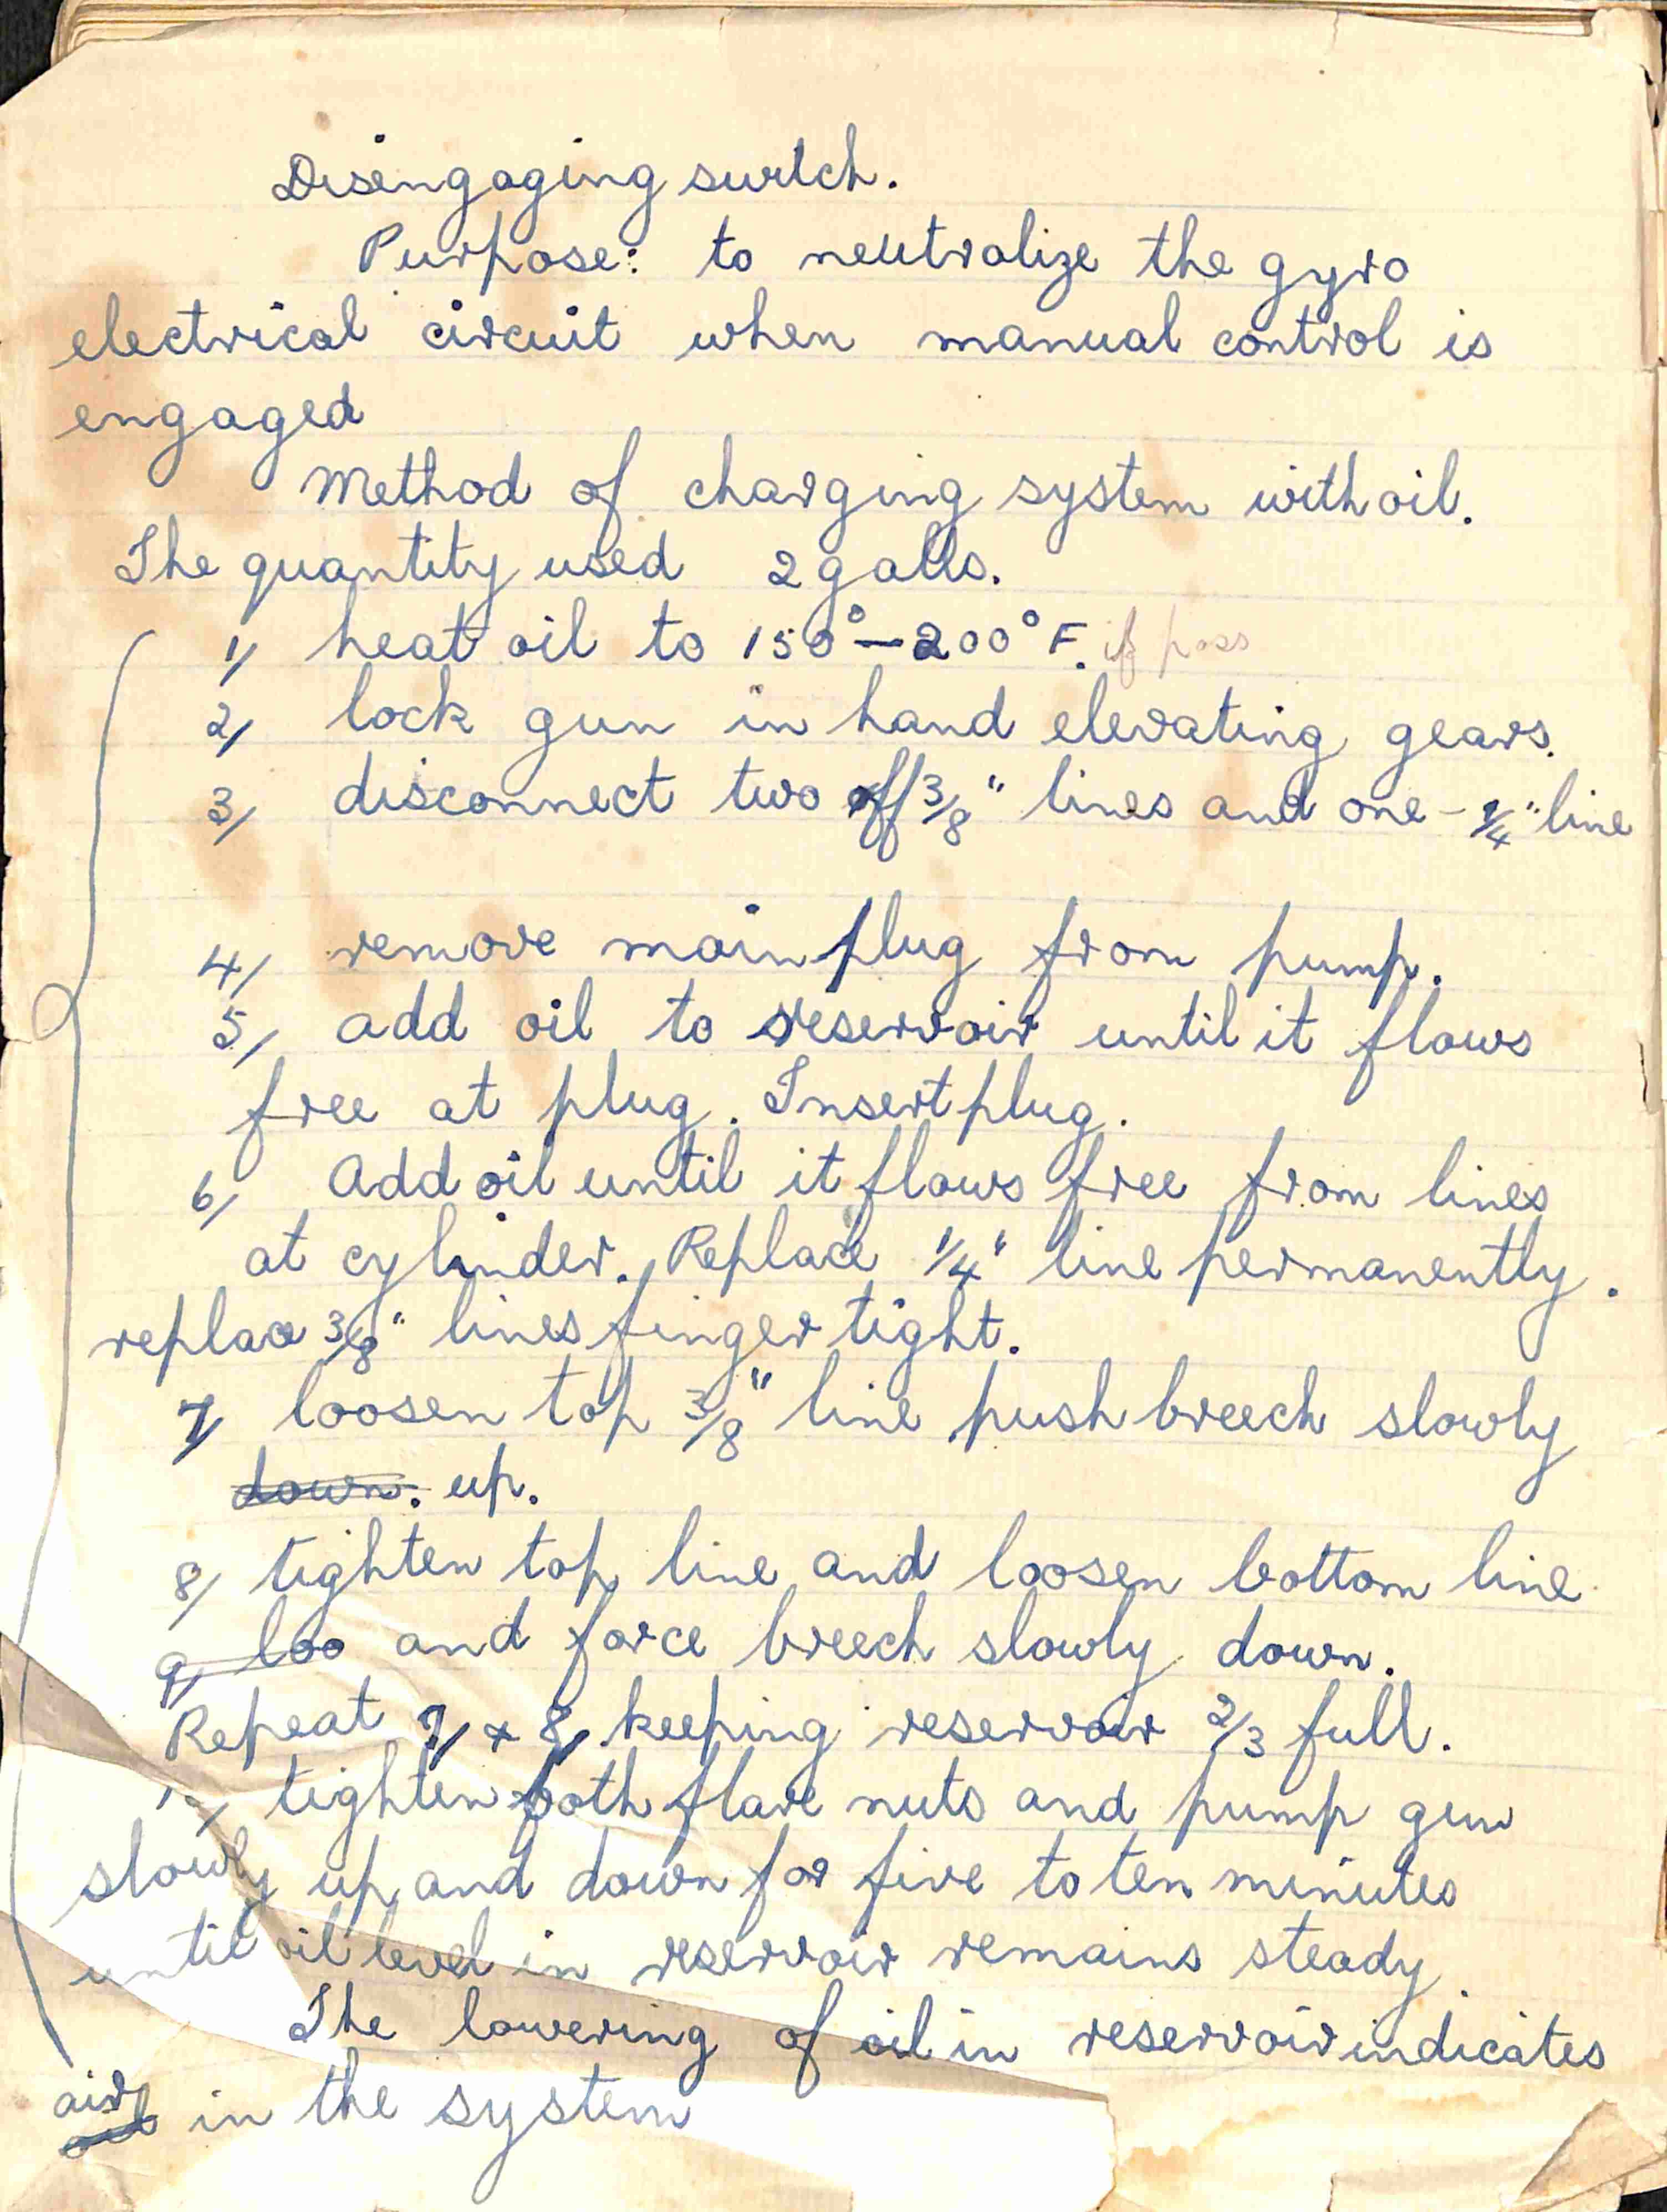 Disengaging switch.
Purpose: to neutralize the gyro
electrical circuit when manual control is
engaged
Method of charging system with oil.
The quantity used 2 galls.
1/ heat oil to 150°-200°F. if poss
2/ lock gun in hand elevating gears.
3/ disconnect two off 3/8" lines and one - 1/4" line
4/ remove main plug from pump.
5/ add oil to reservoir until it flows
free at plug. Insert plug.
6/ Add oil until it flows free from lines
at cylinder. Replace 1/4" line permanently.
replace 3/8" lines finger tight.
7/ loosen top 3/8" line push breech slowly
down. up.
8/ tighten top line and loosen bottom line
9/ loo and force breech slowly down.
Repeat 7/ & 8/ keeping reservoir 2/3 full.
10/ tighten both flare nuts and pump gun
slowly up and down for five to ten minutes
until oil level in reservoir remains steady.
The lowering of oil in reservoir indicates
air oil in the system